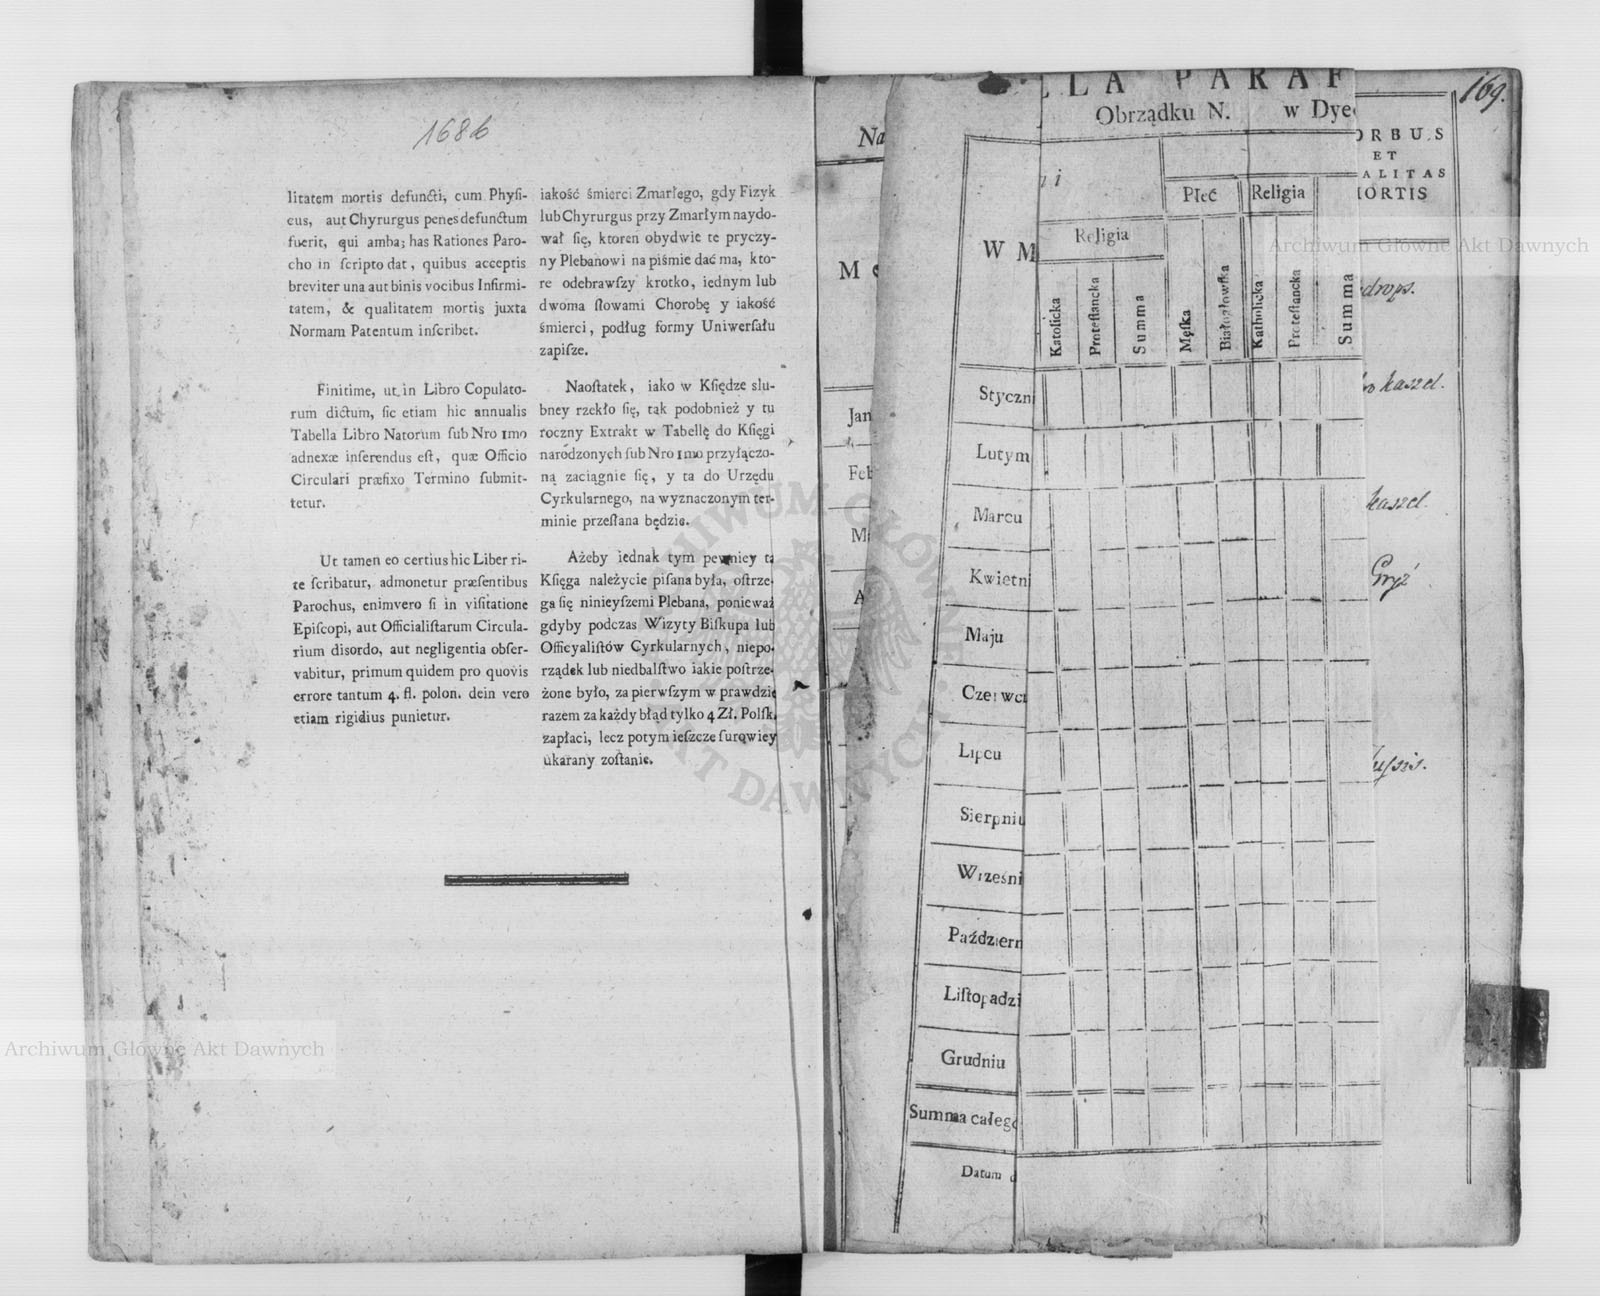 168b
litatem mortis defuncti, cum Phyſi-
cus, aut Chyrurgus penes defunctum
fuerit, qui ambas has Rationes Paro-
cho in ſcripto dat, quibus acceptis
breviter una aut binis vocibus Infirmi-
tatem, & qualitatem mortis juxta
Normam Patentum inſcribet.
Finitime, ut in Libro Copulato-
rum dictum, ſic etiam hic annualis
Tabella Libro Natorum ſub Nro 1mo
adnexæ inſerendus eſt, quæ Officio
Circulari præfixo Termino ſubmit-
tetur.
Ut tamen eo certius hic Liber ri-
te ſcribatur, admonetur præſentibus
Parochus, enimvero ſi in viſitatione
Epiſcopi, aut Officialiſtarum Circula-
rium disordo, aut negligentia obſer-
vabitur, primum quidem pro quovis
errore tantum 4. fl. polon. dein vero
etiam rigidius punietur.
iakość śmierci Zmarłego, gdy Fizyk
lub Chyrurgus przy Zmarłym naydo-
wał ſię, ktoren obydwie te pryczy-
ny Plebanowi na piśmie dać ma, kto-
re odebrawſzy krotko, iednym lub
dwoma ſłowami Chorobę y iakość
śmierci, podług formy Uniwerſału
zapiſze.
Naoſtatek, iako w Kſiędze slu-
bney rzekło ſię, tak podobnież y tu
roczny Extrakt w Tabellę do Kſięgi
narodzonych ſub Nro 1mo przyłączo-
ną zaciągnie ſię, y ta do Urzędu
Cyrkularnego, na wyznaczonym ter-
minie przeſłana będzie.
Ażeby iednak tym pewniey ta
Kſięga należycie piſana była, oſtrze-
ga ſię ninieyſzemi Plebana, ponieważ
gdyby podczas Wizyty Biſkupa lub
Officyaliſtów Cyrkularnych, niepo-
rządek lub niedbalſtwo iakie poſtrze-
żone było, za pierwſzym w prawdzie
razem za każdy błąd tylko 4 Zł. Polſk.
zapłaci, lecz potym ieſzcze ſurowiey
ukarany zoſtanie.
169.
LLA PARAF
Obrządku N. w Dye
Na
Me
Jan
Feb
M
A
W M
Religia
Katolicka
Proteſtancka
Summa
Płeć
Religia
Męſka
Białogłowſka
Katholicka
Proteſtancka
Summa
Styczni
Lutym
Marcu
Kwietni
Maju
Czerwc
Lipcu
Sierpniu
Wrześni
Październ
Liſtopadzi
Grudniu
Summa całego
Datum d
ORBUS
ET
ALITAS
MORTIS
drops.
kaszel.
kaszel.
Gryź
Archiwum Główne Akt Dawnych
Archiwum Główne Akt Dawnych
ARCHIWUM GŁÓWNE AKT DAWNYCH